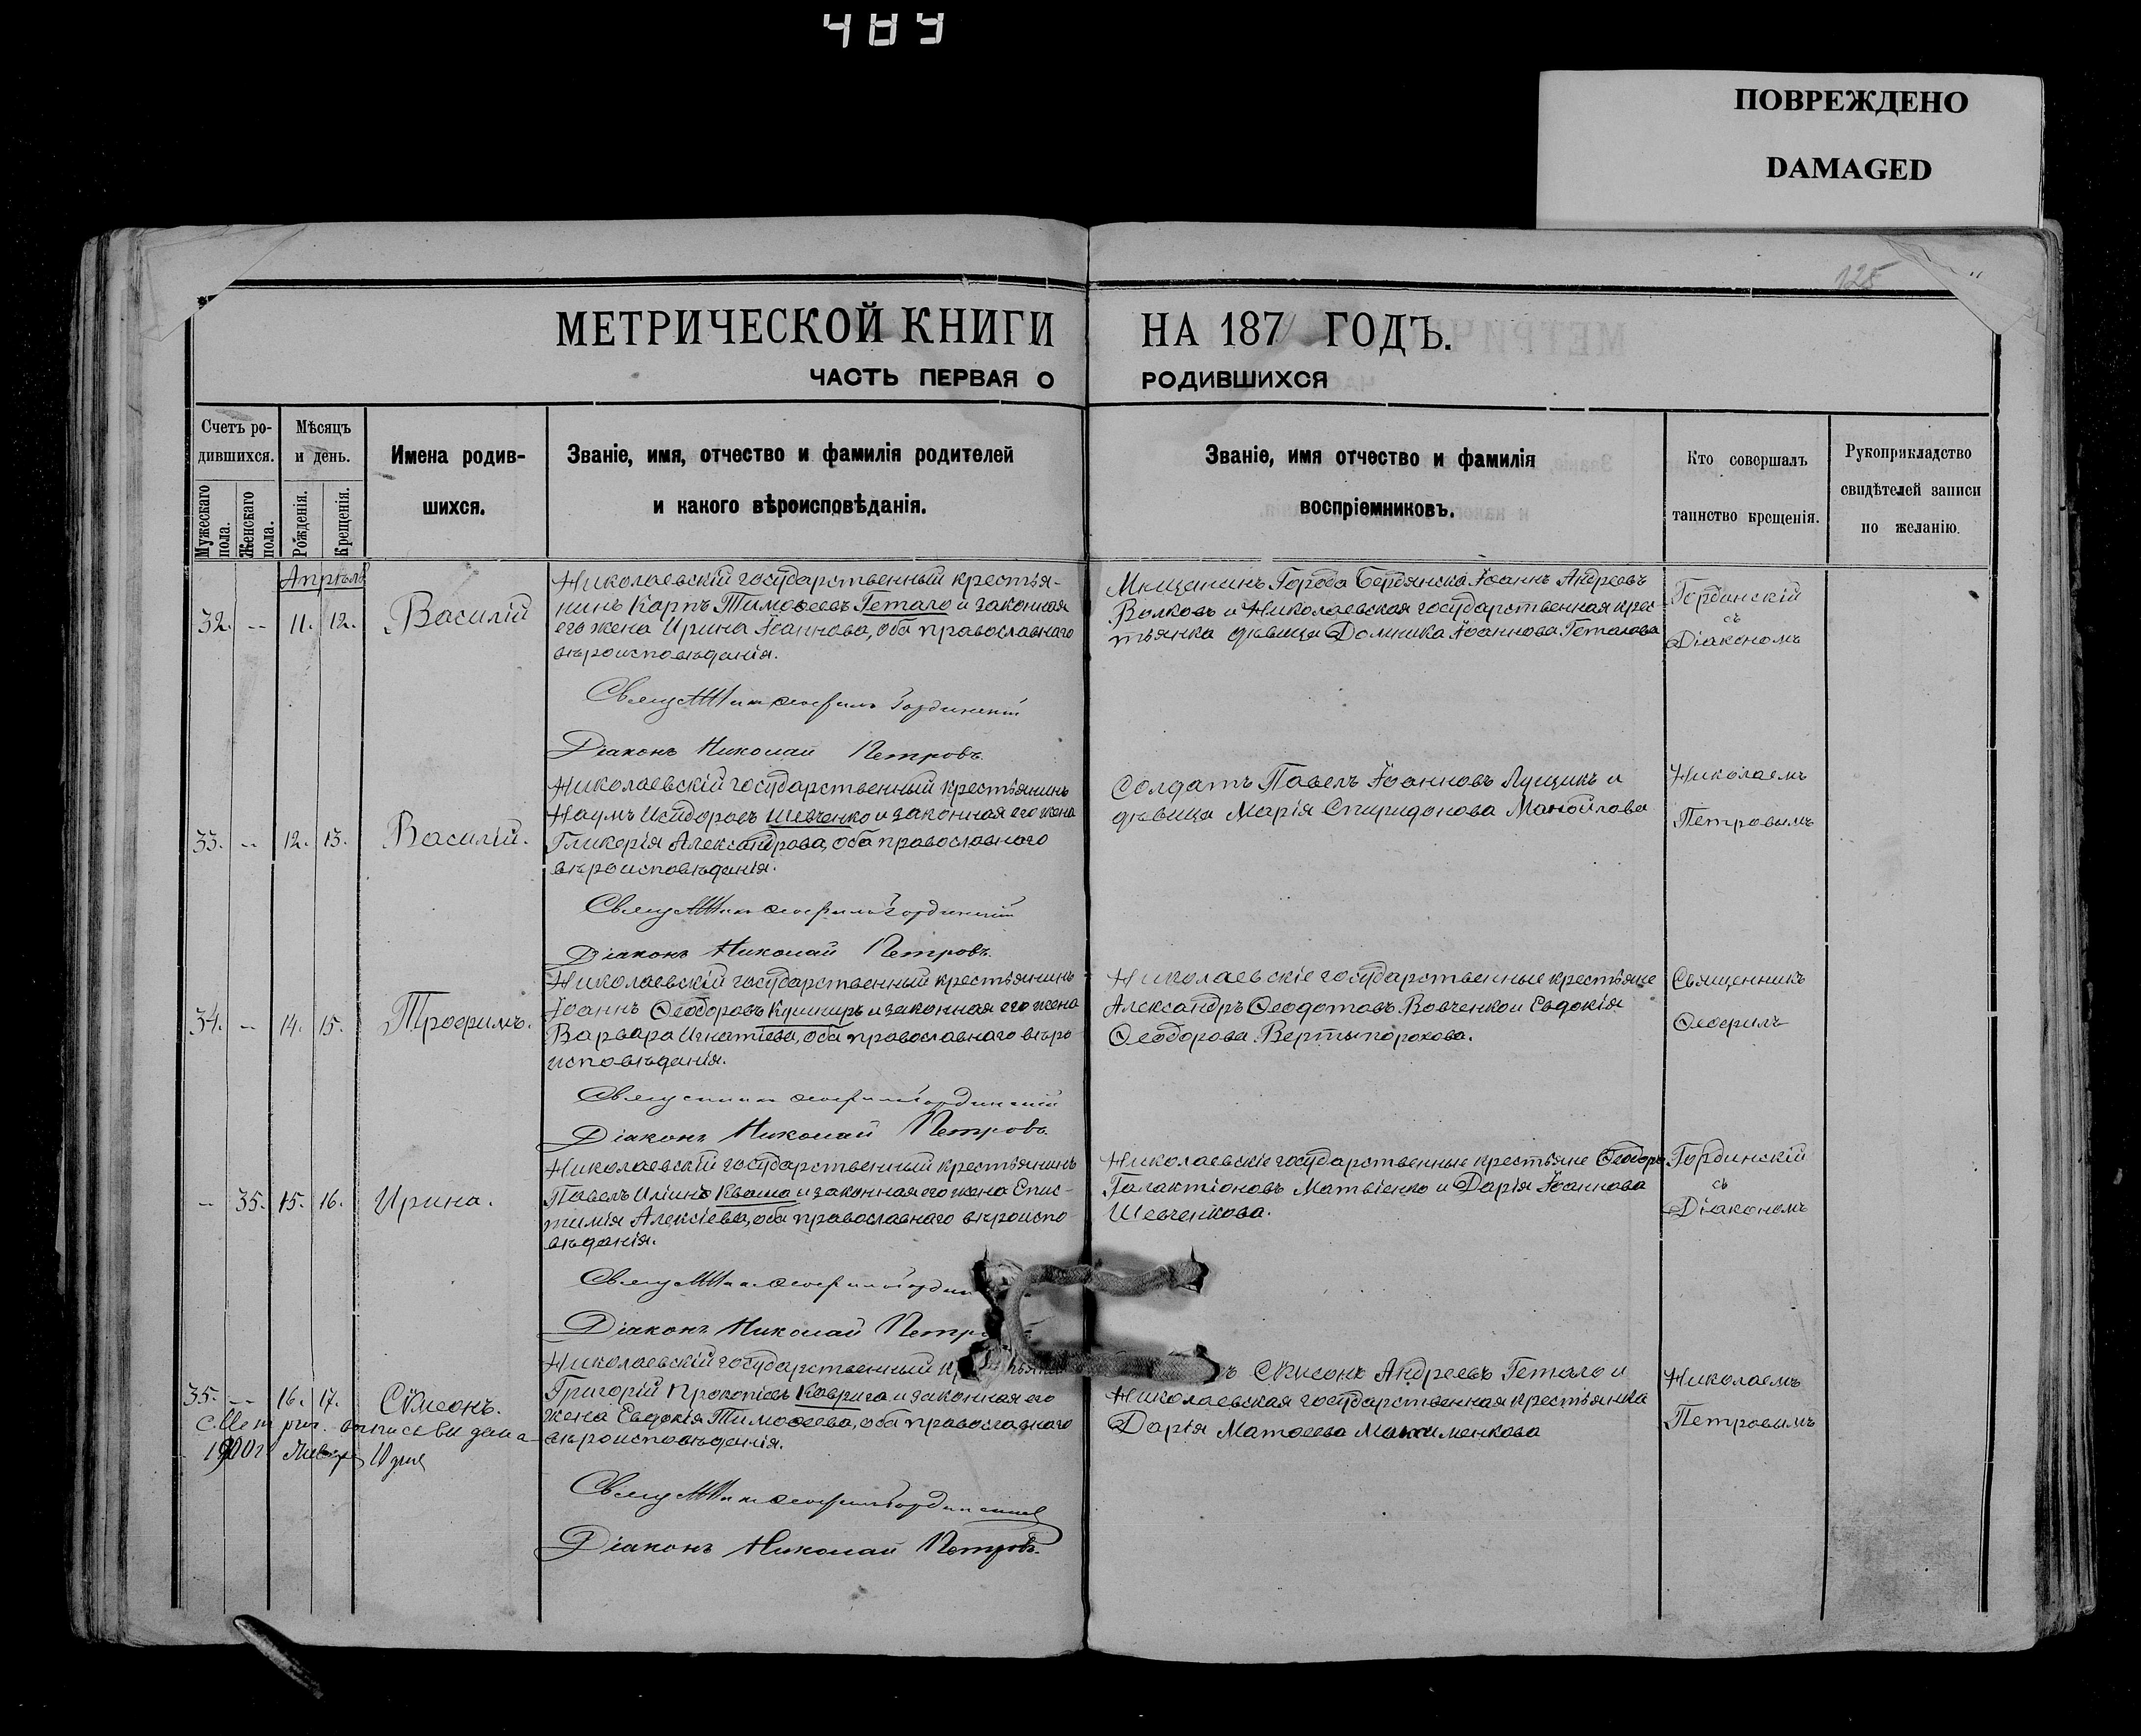 489
ПОВРЕЖДЕНО
DAMAGED
125
МЕТРИЧЕСКОЙ КНИГИ НА 187 ГОДЪ.
ЧАСТЬ ПЕРВАЯ О РОДИВШИХСЯ
Счетъ ро-
дившихся.
Мужескаго
пола.
Женскаго
пола.
Мѣсяцъ
и день.
Рожденія.
Крещенія.
Имена родив-
шихся.
Званіе, имя, отчество и фамилія родителей
и какого вѣроисповѣданія.
Званіе, имя отчество и фамилія
воспріемниковъ.
Кто совершалъ
таинство крещенія.
Рукоприкладство
свидѣтелей записи
по желанію.
Апрѣль
32. -- 11. 12. Василій
Николаевскій государственный крестья-
нинъ Карпъ Тимоѳеевъ Гетало и законная
его жена Ирина Іоаннова, оба православнаго
вѣроисповѣданія.
Діаконъ Николай Петровъ.
Мѣщанинъ Города Бердянска Іоаннъ Андреевъ
Волковъ и Николаевская государственная крес-
тьянка дѣвица Домника Іоаннова Геталова
Гординскій
съ
Діакономъ
33. -- 12. 13. Василій.
Николаевскій государственный крестьянинъ
Наумъ Исидоровъ Шевченко и законная его жена
Гликерія Александрова, оба православнаго
вѣроисповѣданія.
Діаконъ Николай Петровъ.
Солдатъ Павелъ Іоанновъ Лущикъ и
дѣвица Марія Спиридонова Манойлова
Николаемъ
Петровымъ
34. -- 14. 15. Трофимъ.
Николаевскій государственный крестьянинъ
Іоаннъ Ѳеодоровъ Кушниръ и законная его жена
Варвара Игнатіева, оба православнаго вѣро
исповѣданія.
Діаконъ Николай Петровъ.
Николаевскіе государственные крестьяне
Александръ Ѳеодотовъ Вовченко и Евдокія
Ѳеодорова Вертыпорохова.
Священникъ
Ѳеофилъ
-- 35. 15. 16. Ирина.
Николаевскій государственный крестьянинъ
Павелъ Иліинъ Кваша и законная его жена Епис-
тимія Алексіева, оба православнаго вѣроиспо-
вѣданія.
Діаконъ Николай
Николаевскіе государственные крестьяне Ѳеодоръ
Галактіоновъ Матвіенко и Дарія Іоаннова
Шевченкова.
Гординскій
съ
Діакономъ
35. -- 16. 17. Сѵмеонъ.
выпись выдана
1900 г
Николаевскій государственный
Григорій Прокопіевъ Коврига и законная его
жена Евдокія Тимоѳеева, оба православнаго
вѣроисповѣданія.
Діаконъ Николай Петровъ.
Андреевъ Гетало и
Николаевская государственная крестьянка
Дарія Матѳеева
Николаемъ
Петровымъ